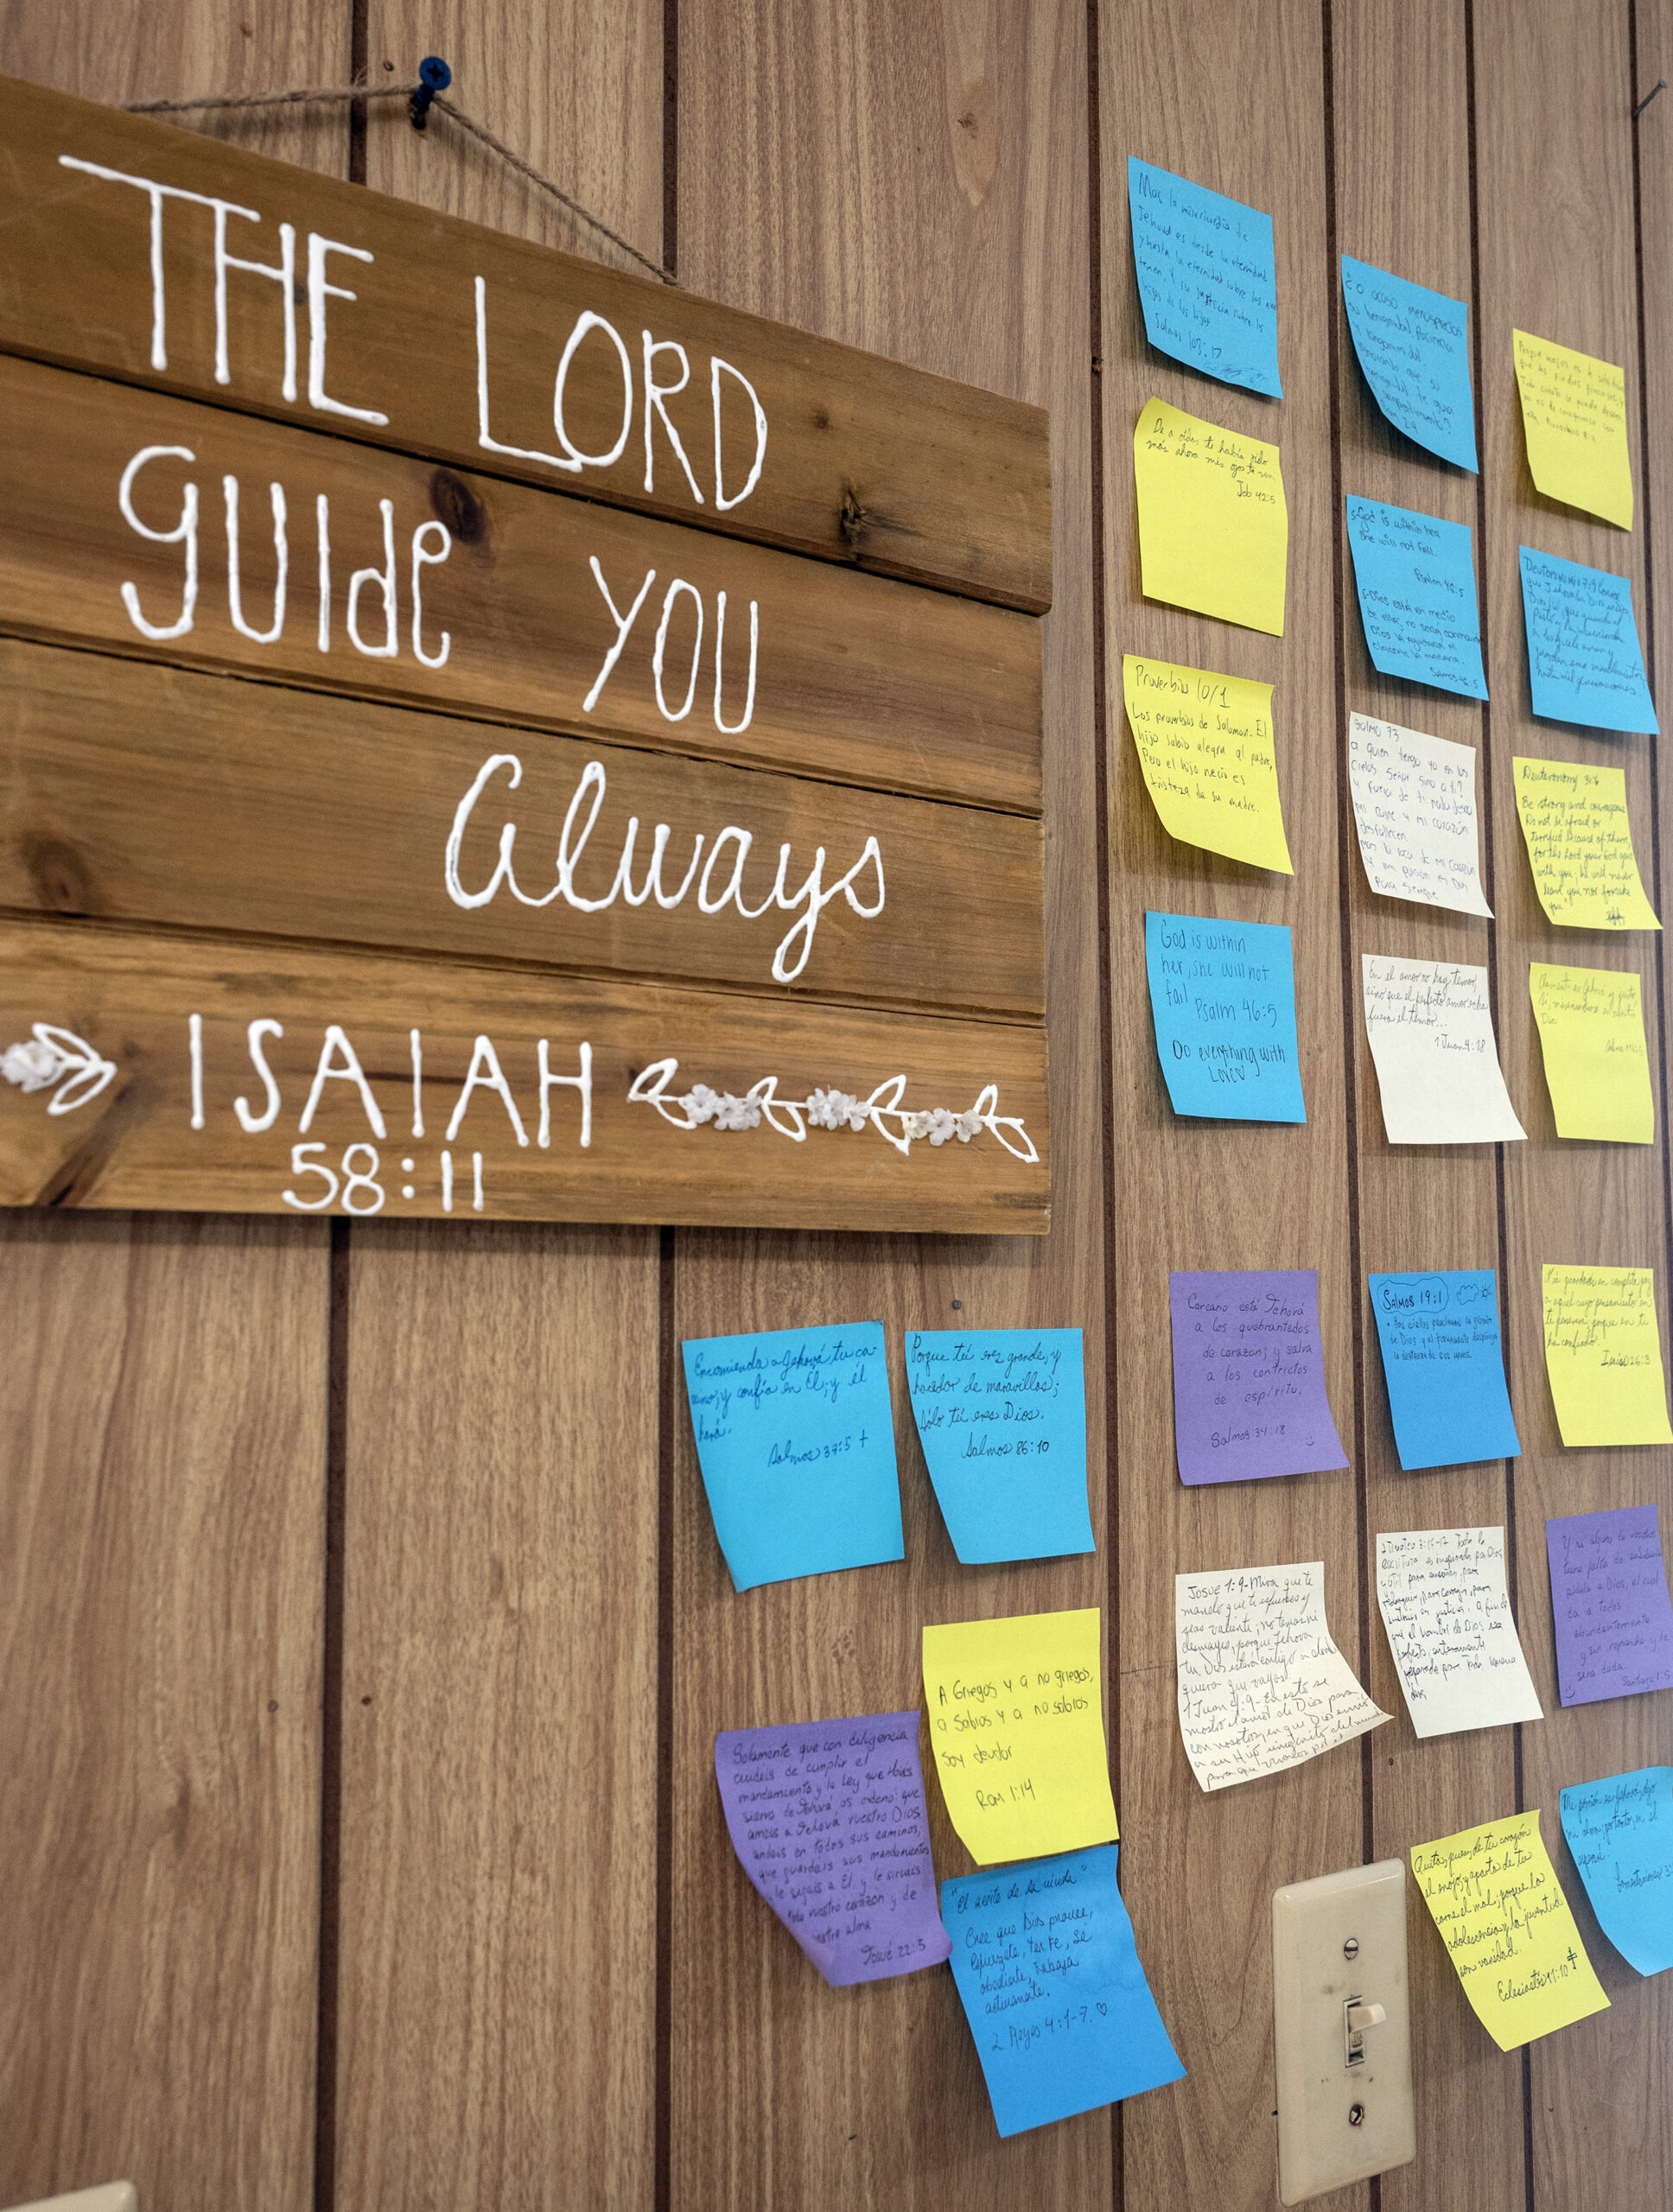 THE LORD
guide you
Always
ISAIAH
58:11
Mas la misericordia de
Jehová es desde la eternidad
y hasta la eternidad sobre los que
temen. Y su justicia sobre los
hijos de los hijos
Salmos 103:17
¿O acaso menosprecias
su benignidad, Paciencia
que su
benignidad te guía
arrepentimiento?
2:4
De a oídas te había oído
más ahora mis ojos te ven.
Job 42:5
5-God is within her,
she will not fall.
Psalm 46:5
5-Dios está en medio
de ella; no será conmovida
Dios la ayudará al
clarear la mañana.
Salmos 46:5
Proverbios 10/1
Los proverbios de Salomon. El
hijo sabio alegra al padre,
Pero el hijo necio es
tristeza de su madre.
Salmo 73
a quien tengo yo en los
cielos Señor sino a ti?
y fuera de ti nada deseo
mi carne y mi corazón
desfallecen
mas la roca de mi corazón
y mi porcion es Dios
Para siempre
Deuteronomy 31:6
Be strong and courageous
Do not be afraid or
terrified because of them,
for the Lord your God goes
with you; he will never
leave you nor forsake
you"
God is within
her, she will not
fail Psalm 46:5
Do everything with
Love♡
En el amor no hay temor,
sino que el perfecto amor echa
fuera el temor...
1 Juan 4:18
Clemente es Jehová y justo
Sí, misericordioso es nuestro
Dios
Encomienda a Jehová tu ca-
mino, y confía en Él; y él
hará.
Salmos 37:5 †
Porque tú eres grande, y
hacedor de maravillas;
Sólo tú eres Dios.
Salmos 86:10
Cercano está Jehová
a los quebrantados
de corazón; y salva
a los contrictos
de espíritu.
Salmos 34:18
Salmos 19:1
• Los cielos proclaman la gloria
de Dios y el firmamento despliega
la destreza de sus manos.
Tú guardarás en completa paz
a aquel cuyo pensamiento en
ti persevera; porque en ti
ha confiado.
Isaías 26:3
A Griegos y a no griegos,
a Sabios y a no sabios
soy deudor
Rom 1:14
Josué 1:9-Mira que te
mando que te esfuerces y
seas valiente; no temas ni
desmayes, porque Jehova
tu Dios estará contigo en donde
quiera que vayas.
1 Juan 4:9-En esto se
mostró el amor de Dios para
con nosotros, en que Dios envió
a su Hijo unigénito al mundo
para que vivamos por él
2 Timoteo 3:16-17 Toda la
escritura es inspirada por Dios
y útil para enseñar, para
redarguir, para corregir, para
instruir en justicia. A fin de
que el hombre de Dios sea
perfecto, enteramente
preparado para toda buena
obra.
Y si alguno de vosotros
tiene falta de sabiduría
pídala a Dios, el cual
da a todos
abundantemente
y sin reproche y le
será dada.
Santiago 1:5
Solamente que con diligencia
cuidéis de cumplir el
mandamiento y la ley que Moises
siervo de Jehová, os ordenó: que
améis a Jehová vuestro Dios,
andéis en todos sus caminos;
que guardéis sus mandamientos
le sigais a Él, y le sirvais
todo vuestro corazón y de
vuestra alma
Josué 22:5
"El aceite de la viuda"
Cree que Dios provee,
esfuerzate, ten fe, se
obediente, trabaja
activamente.
2 Reyes 4:1-7. ♡
Quita, pues, de tu corazón
el enojo, y aparta de tu
carne el mal; porque la
adolescencia y la juventud
son vanidad.
Eclesiastés 11:10 †
Mi porción es Jehová, dijo
mi alma; por tanto, en él
esperaré.